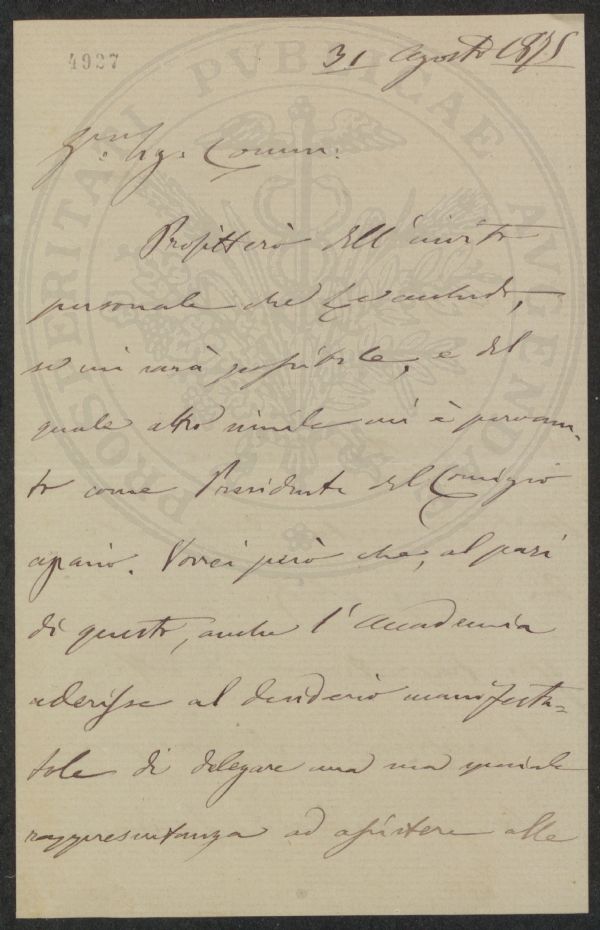 4927
31 Agosto 1875
Sig. Comm:
Profitterò dell'invito
personale che
se mi sarà possibile, e del
quale altro simile mi è pervenu-
to come Presidente del Comizio
agrario. Vorrei però che, al pari
di questo, anche l'Accademia
aderisse al desiderio manifesta-
tole di delegare una sua speciale
rappresentanza ad assistere alle
POSTERITATI PUBLICAE AUGENDAE PROSPERITATI